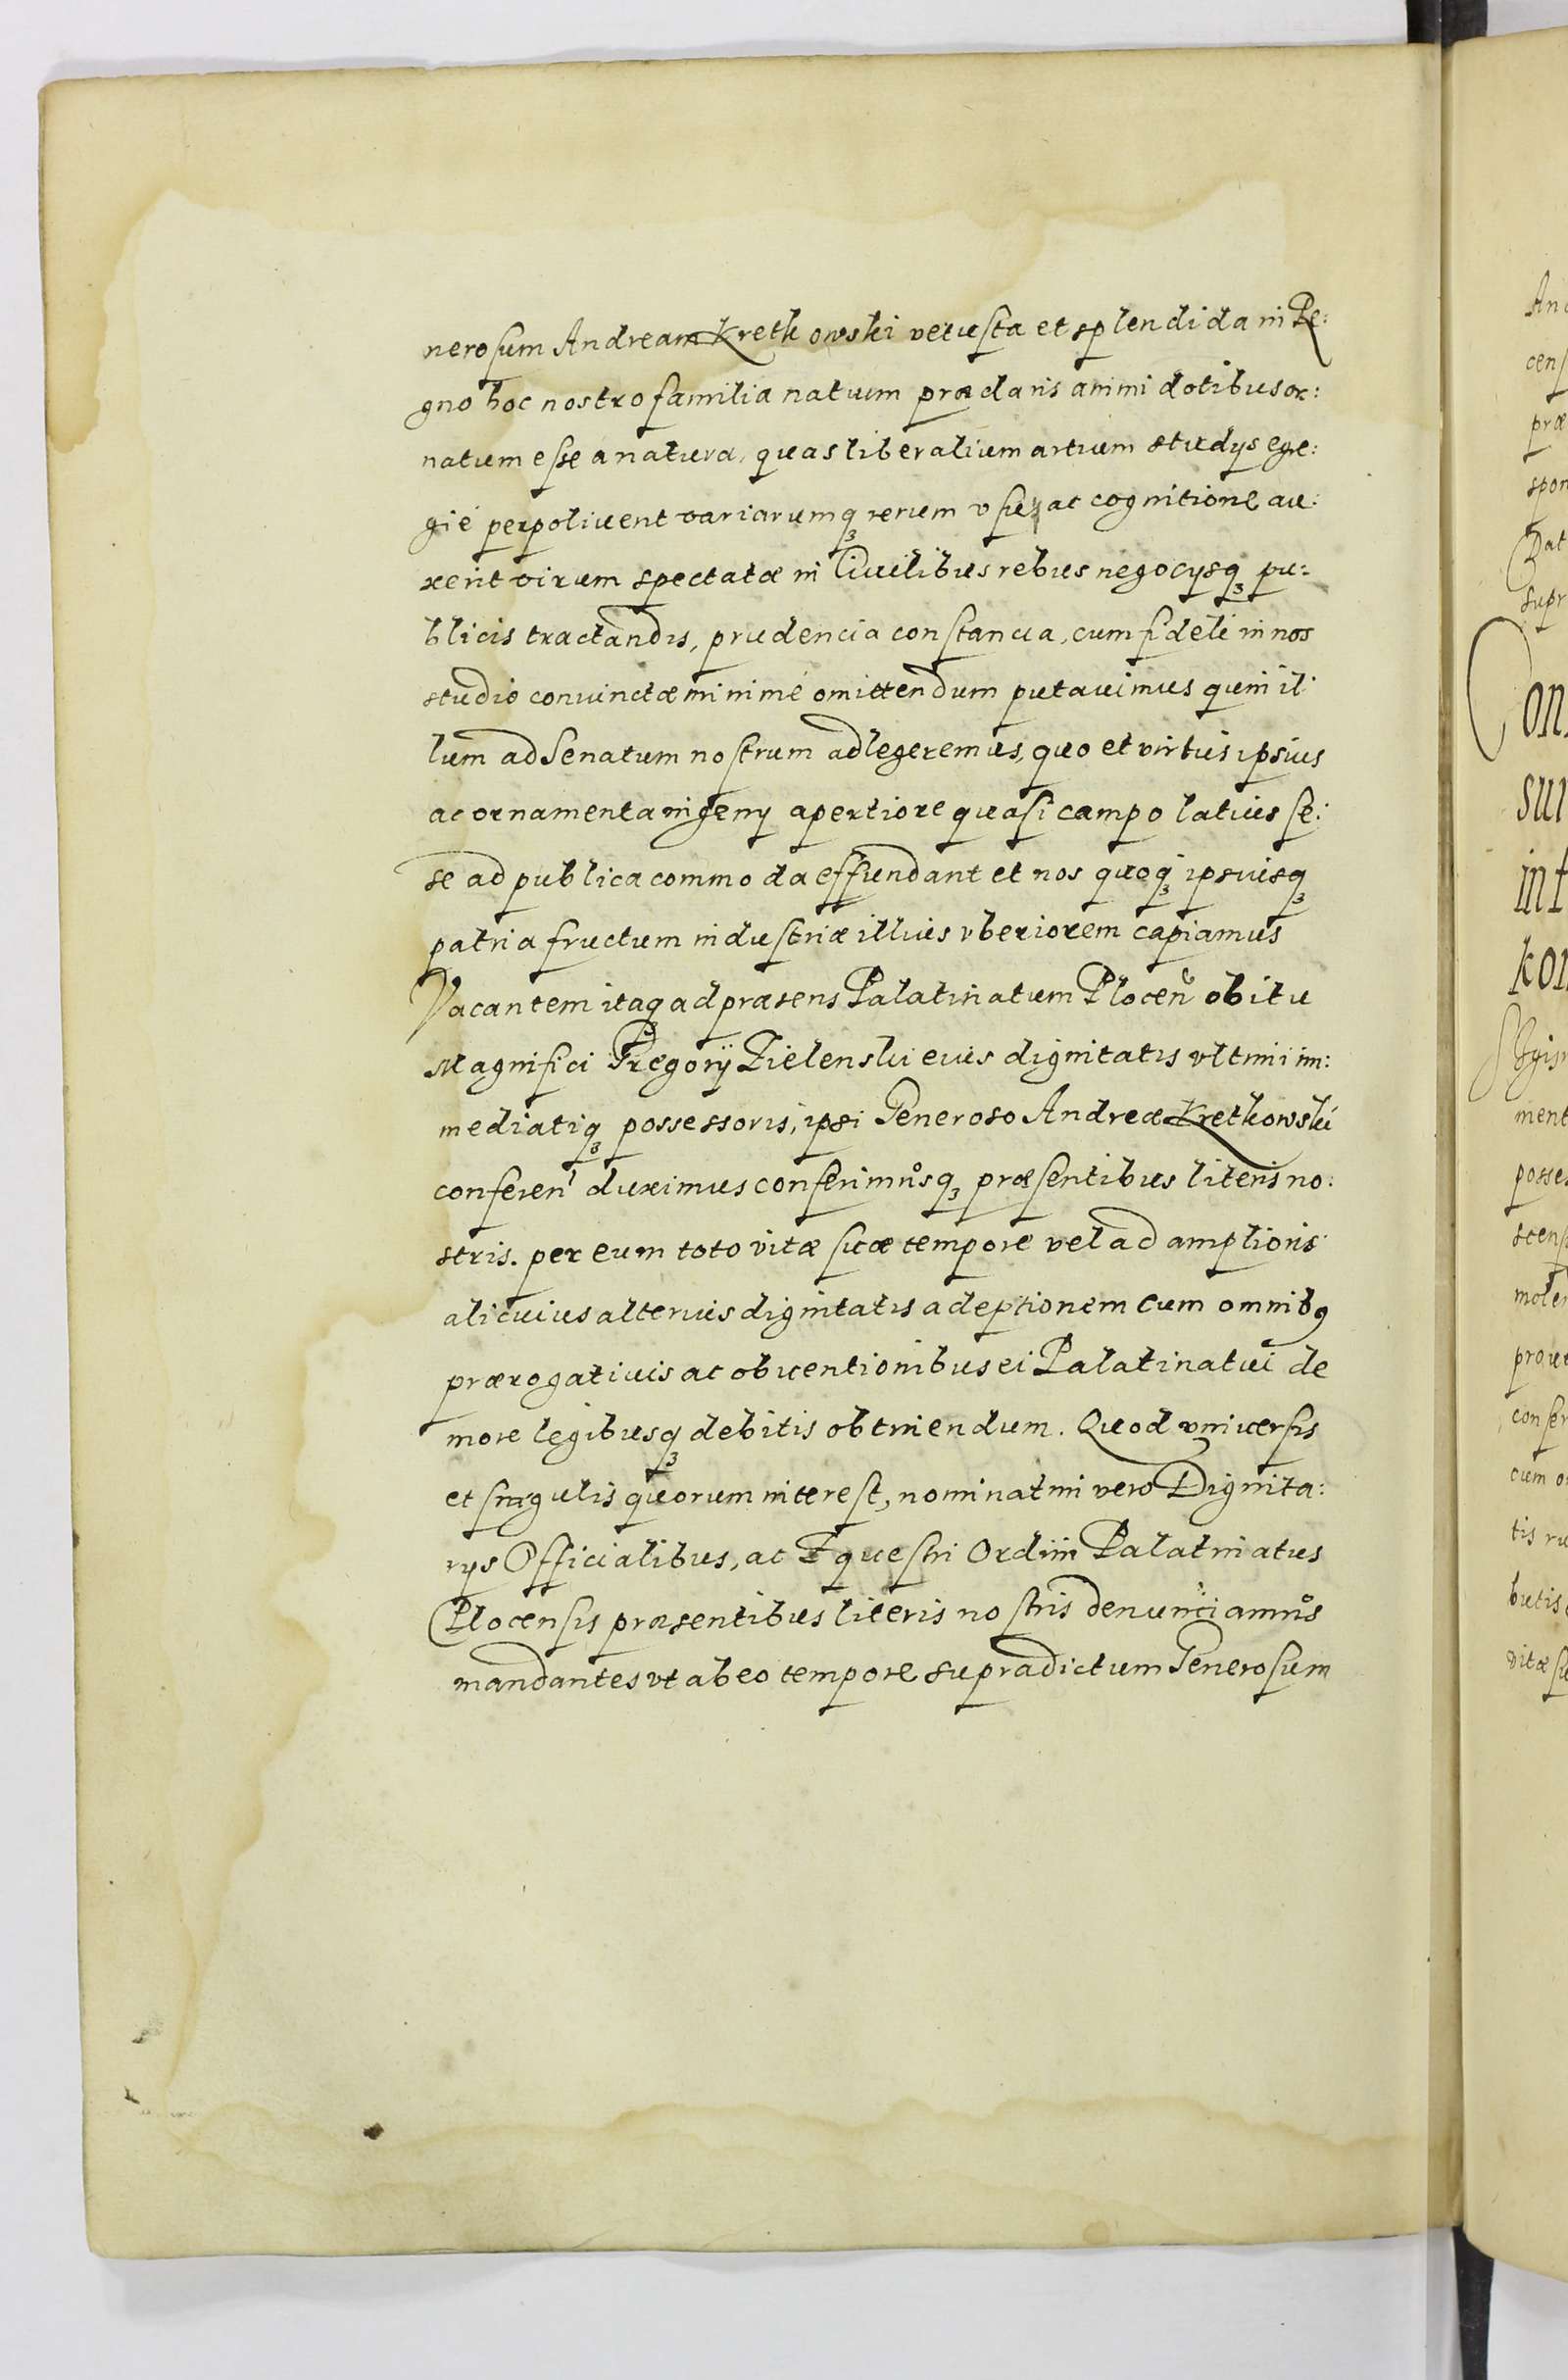 nerosum Andream Krethowski vetusta et splendida in Re:
gno hoc nostro familia natum præclaris animi dotibus or:
natum esse a natura, quas liberalium artium studys egre:
gié perpoliuerit variarumq3 rerum vsu ac cognitione au:
xerit virum spectatæ in Ciuilibus rebus negocysq3 pu:
blicis tractandis, prudencia constancia, cum fideli in nos
studio conuinctæ minimé omittendum putauimus quin il:
lum ad Senatum nostrum adlegeremus, quo et virtus ipsius
ac ornamenta ingeny apertiore quasi campo latius se:
se ad publica commoda effundant et nos quoq3 ipsiusq3
patria fructum industriæ illius vberiorem capiamus
Vacantem itaq3 ad præsens Palatinatum Plocen obitu
Magnifici Gregorij Zielenski eius dignitatis vltimi im:
mediatiq3 possessoris, ipsi Generoso Andreæ Krethowski
conferen duximus conferimusq3 præsentibus literis no:
stris. per eum toto vitæ suæ tempore vel ad amplioris
alicuius alterius dignitatis adeptionem cum omnib9
prærogatiuis ac obuentionibus ei Palatinatui de
more legibusq3 debitis obtinendum. Quod vniuersis
et singulis quorum interest, nominatim vero Dignita:
rys Officialibus, ac Equestri Ordini Palatinatus
Plocensis præsentibus literis nostris denunciamus
mandantes vt ab eo tempore supradictum Generosum